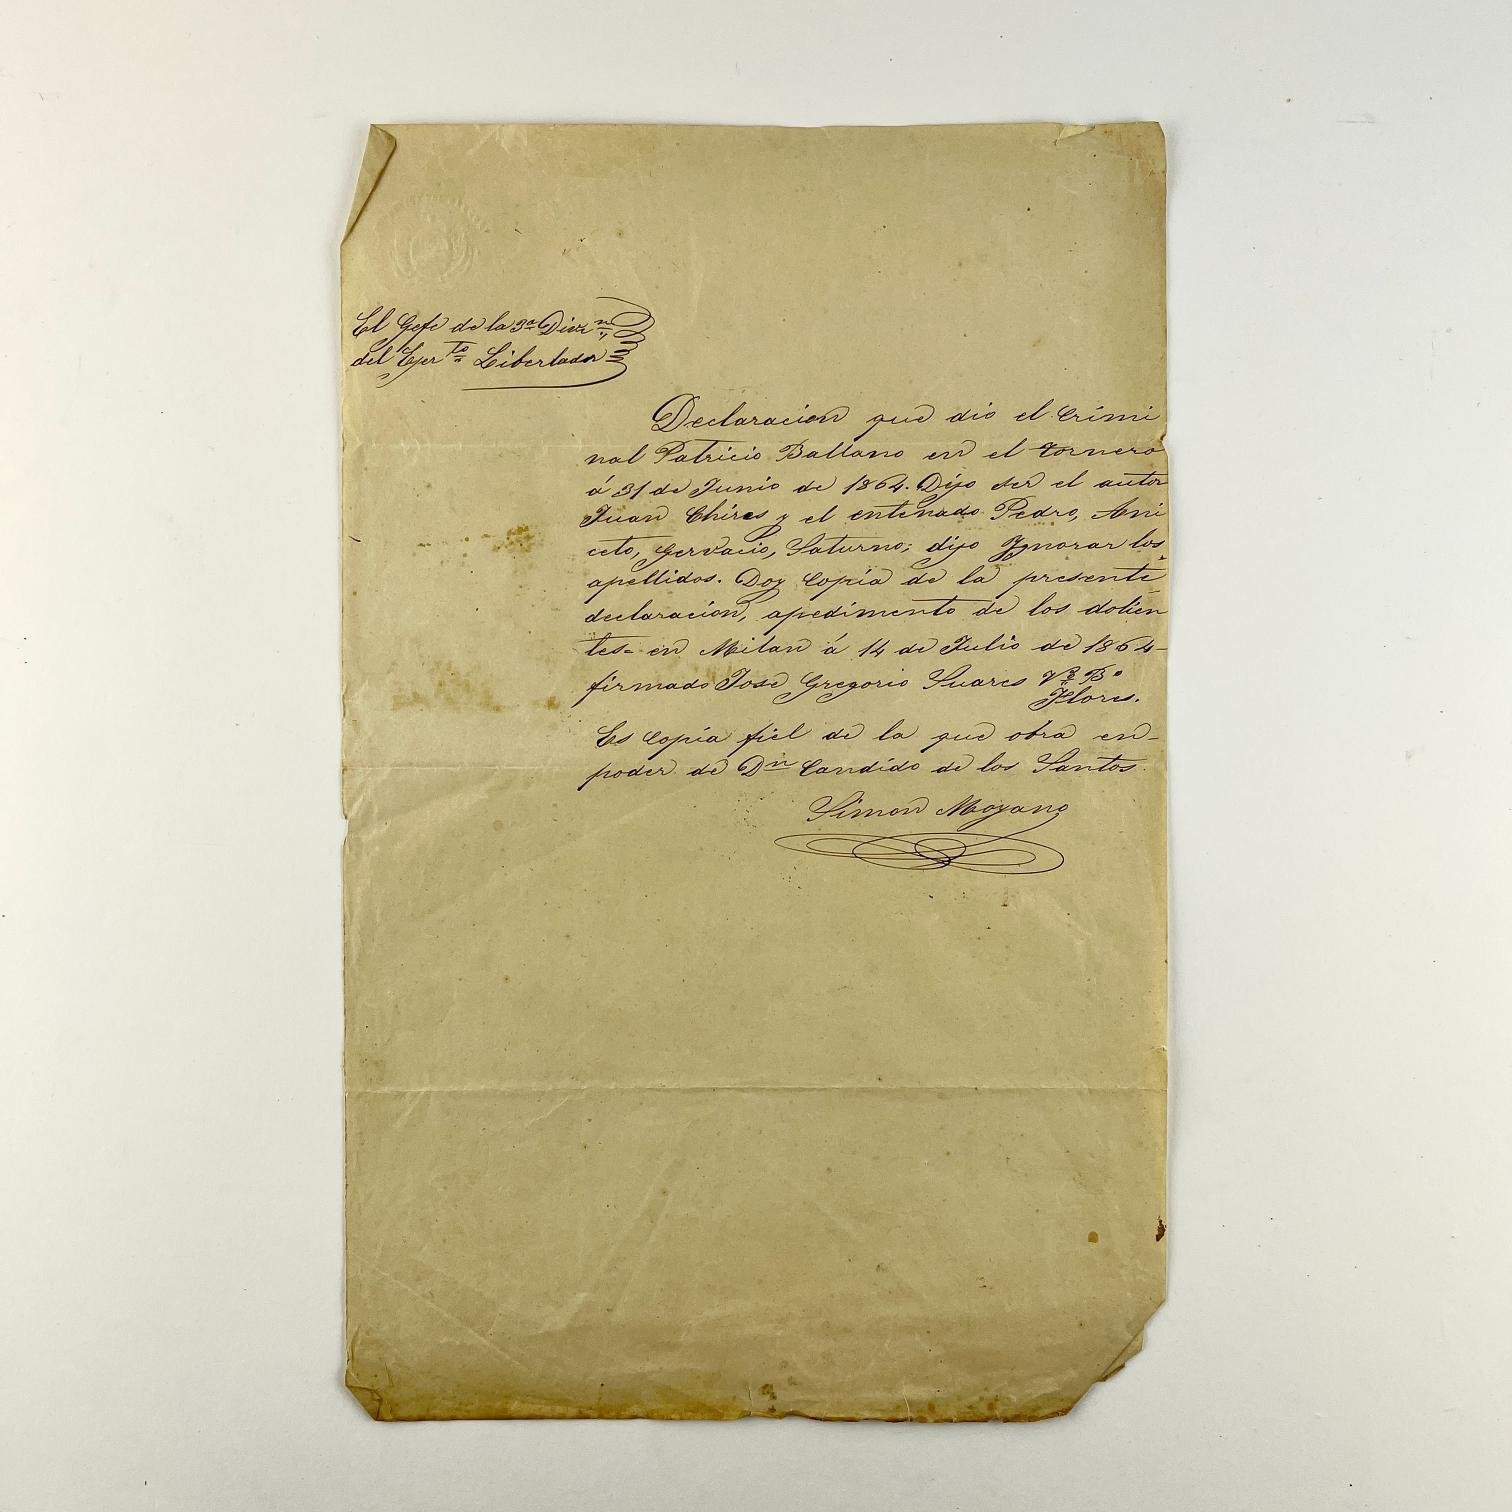 El Gefe de la 3ª Divi.n
del Ejer.to Libertador
Declaracion que dio el Crimi
nal Patricio Ballano en el Tornero
á 31 de Junio de 1864. Dijo ser el autor
Juan Chires y el entenado Pedro, Ani
ceto, Gervacio, Saturno; dijo Ygnorar los
apellidos. Doy Copia de la presente
declaracion, apedimento de los dolien
tes- en Milan á 14 de Julio de 1864-
firmado Jose Gregorio Suares Vº Bº
Flores.
Es Copia fiel de la que obra en-
poder de Dn Candido de los Santos.
Simon Moyano